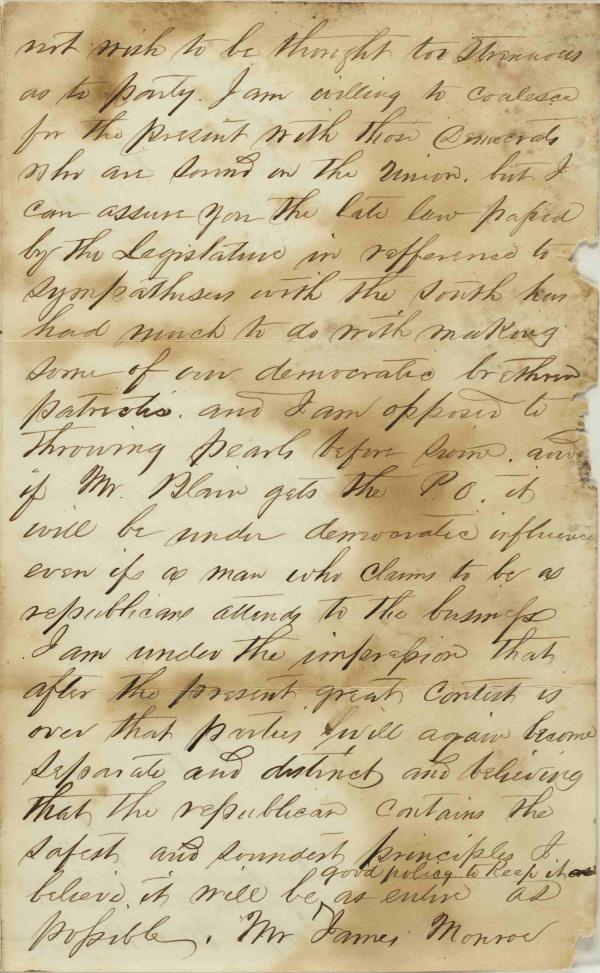 not wish to be thought too strenuous
as to party. I am willing to coalesce
for the present with those Democrats
who are sound on the Union. but I
can assure you the late law passed
by the Legislature in refference to
sympathisers with the south has
had much to do with making
some of our democratic brethren
patriotic. and I am opposed to
throwing pearls before swine. and
if Mr. Blair gets the P O. it
will be under democratic influence
even if a man who claims to be a
republican attends to the business
I am under the impression that
after the present great contest is
over that parties will again become
separate and distinct and believing
that the republican contains the
safest and soundest principles I
good policy to keep it
believe it will be as entire as
possible. Mr James Monroe